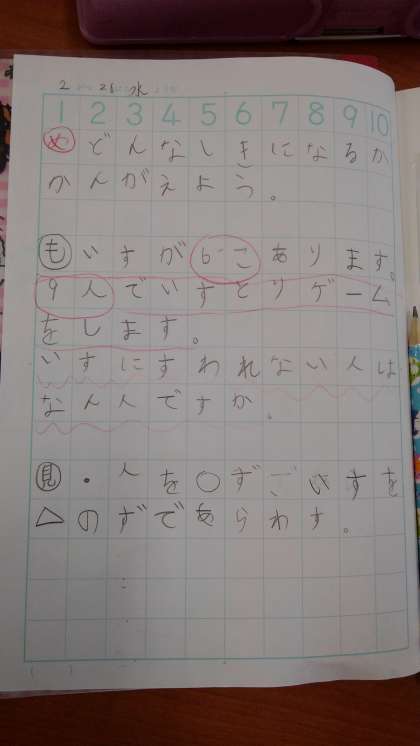 2 28 水
1 2 3 4 5 6 7 8 9 10
め どんなしきになるか
かんがえよう。
も いすが6こあります。
9人でいすとりゲーム
をします。
いすにすわれない人は
なん人ですか。
見 ・人を○ずごいすを
△のずであらわす。